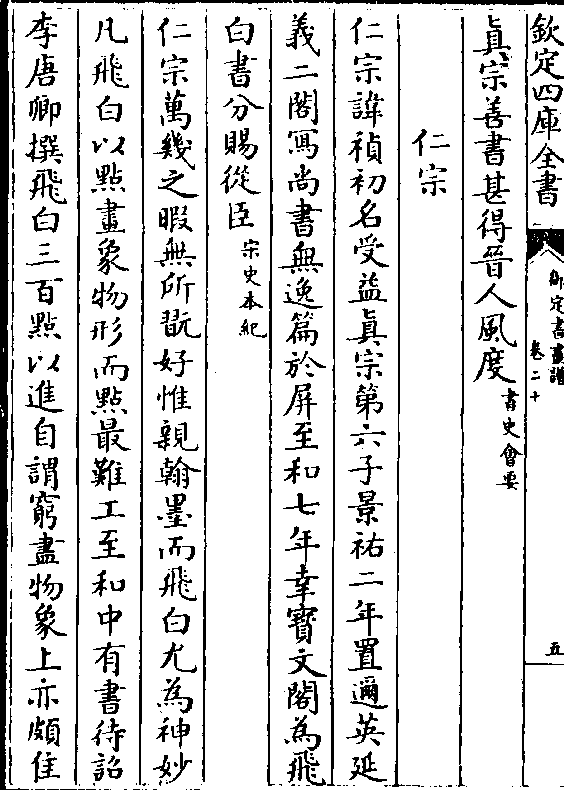 欽定四庫全書
御定書畫譜
卷二十
五
眞宗善書甚得晉人風度書史會要
仁宗
仁宗諱禎初名受益眞宗第六子景祐二年置邇英延
義二閣寫尚書無逸篇於屏至和七年幸寶文閣為飛
白書分賜從臣宋史本紀
仁宗萬幾之暇無所翫好惟親翰墨而飛白尤為神妙
凡飛白以點畫象物形而點最難工至和中有書待詔
李唐卿撰飛白三百點以進自謂窮盡物象上亦頗佳